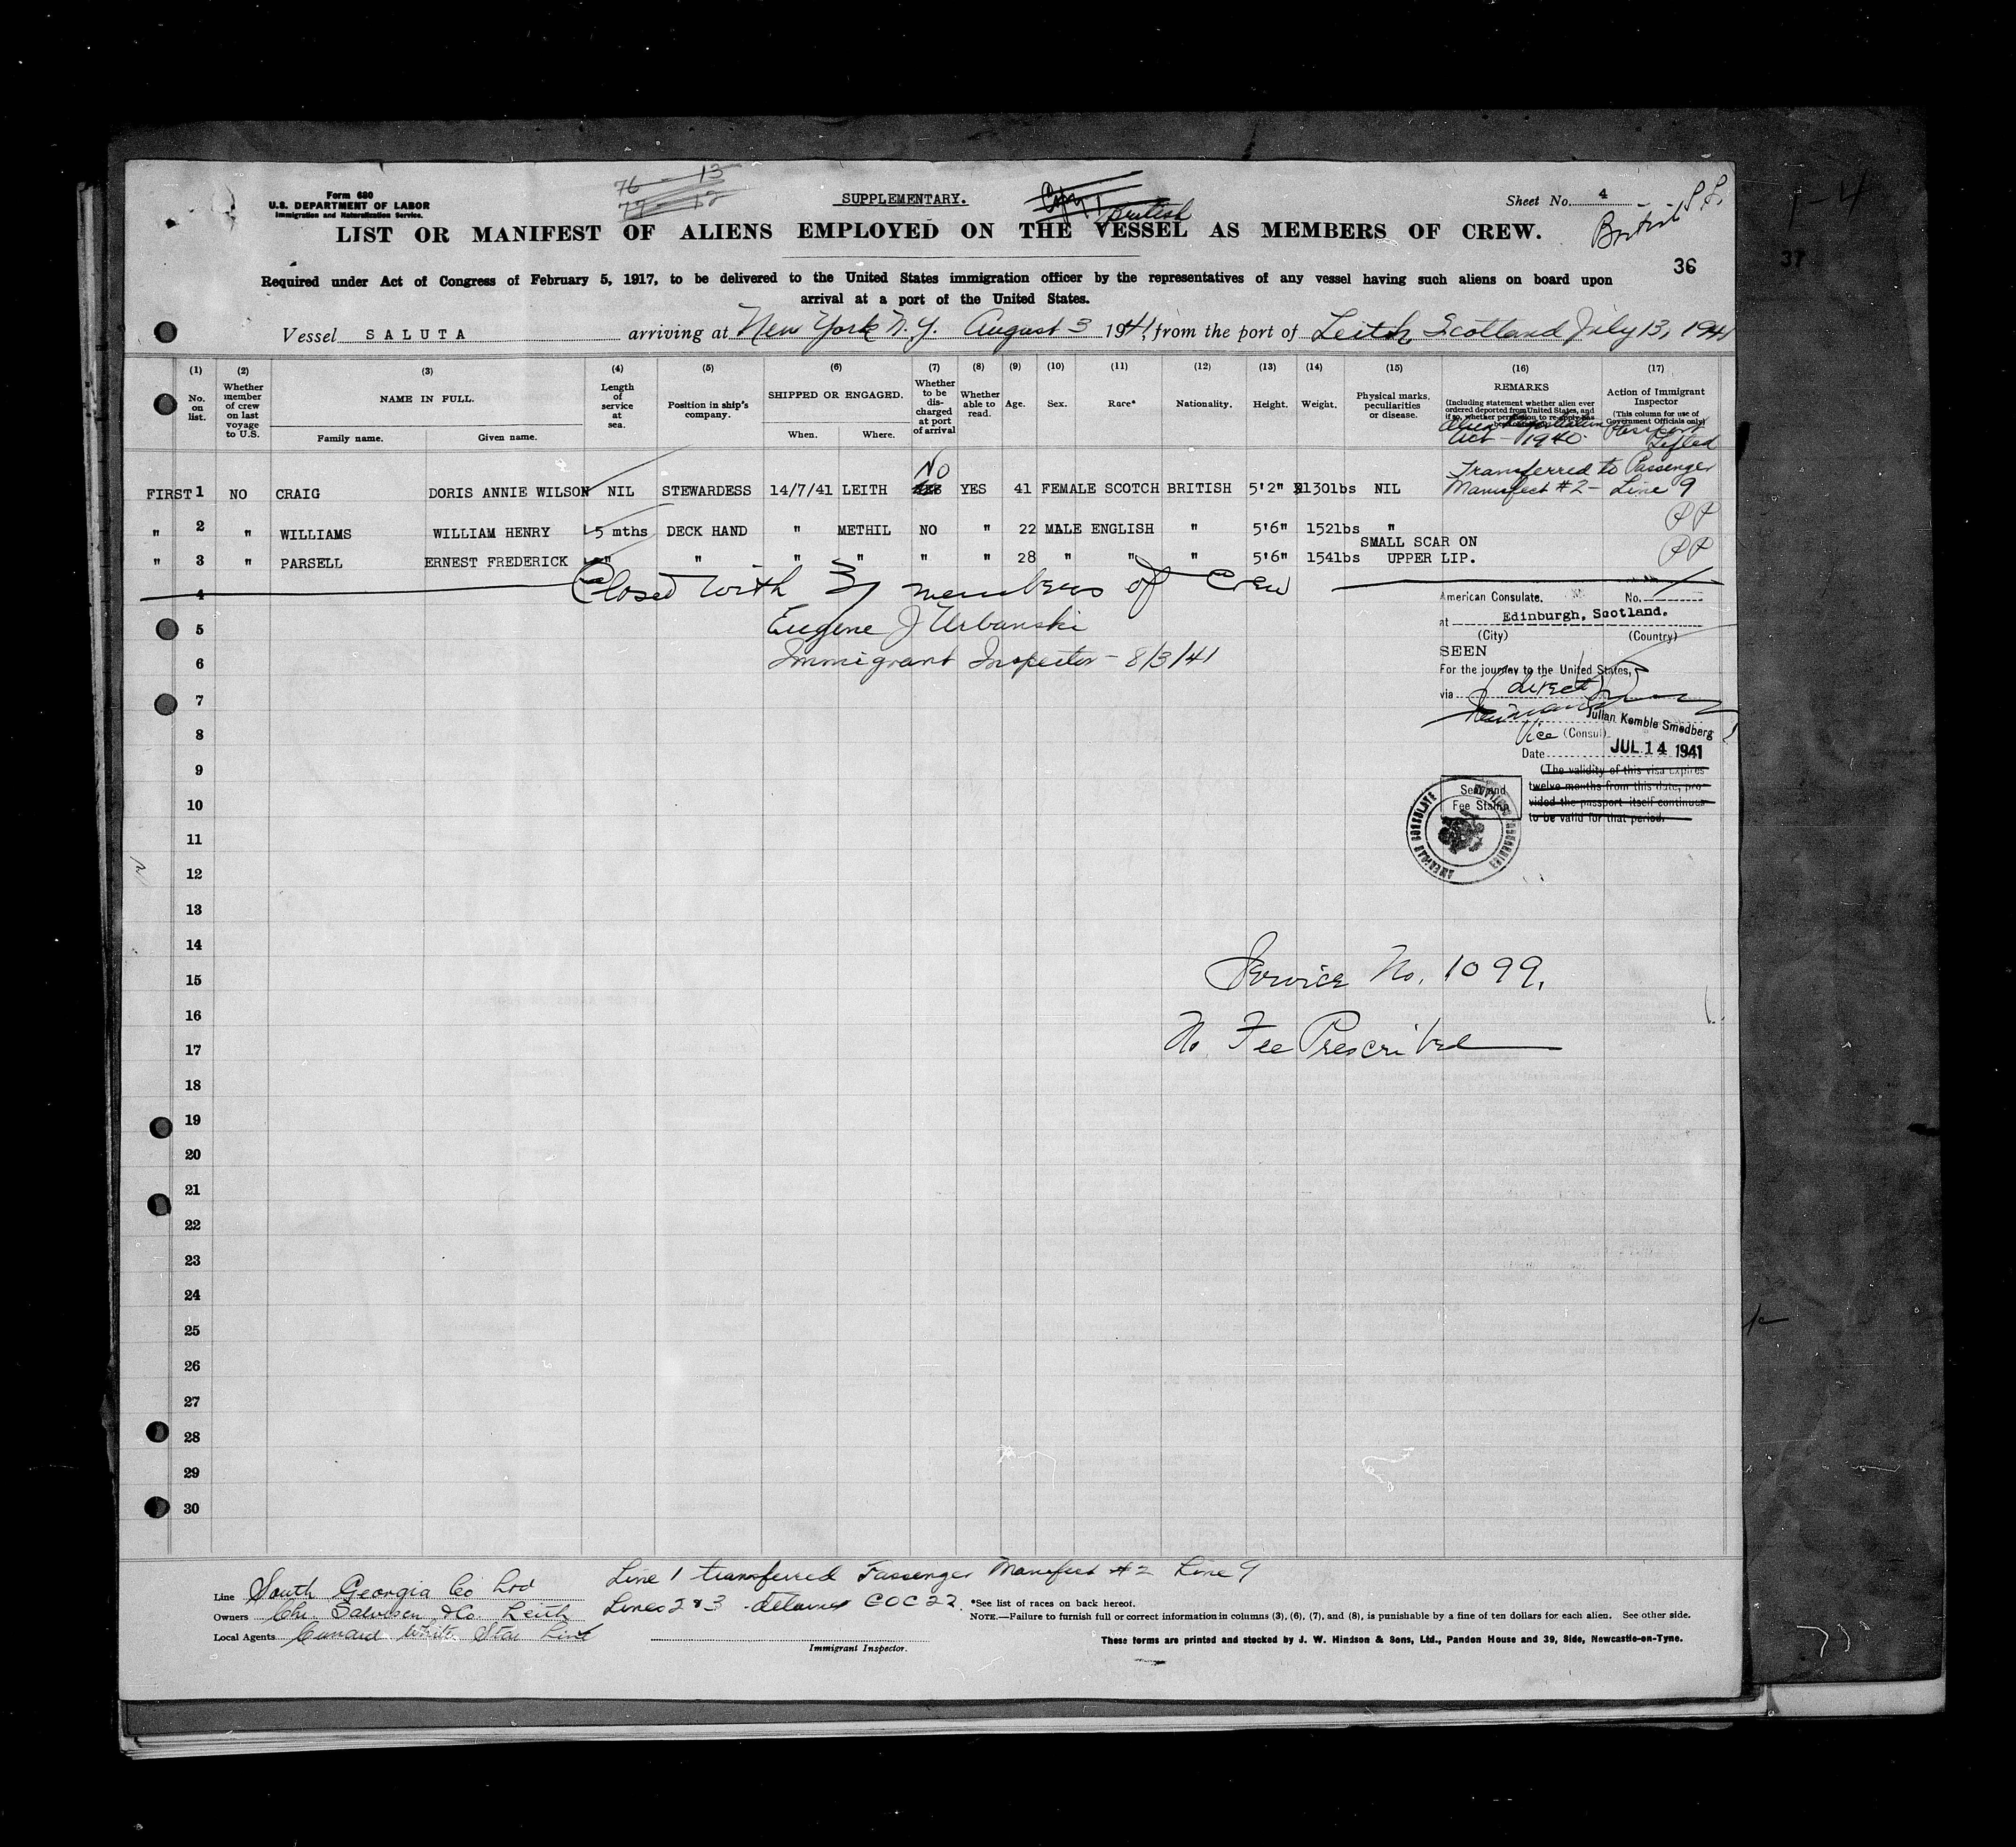 Form 680
U.S. DEPARTMENT OF LABOR
Immigration and Naturalization Service.
76 - 13
77 - 12
SUPPLEMENTARY.
Copy
British
Sheet No. 4
British
1-4
LIST OR MANIFEST OF ALIENS EMPLOYED ON THE VESSEL AS MEMBERS OF CREW.
36
37
Required under Act of Congress of February 5, 1917, to be delivered to the United States immigration officer by the representatives of any vessel having such aliens on board upon
arrival at a port of the United States.
Vessel SALUTA arriving at New York N.Y. August 3 1941, from the port of Leith, Scotland July 13, 1941
(1) (2) (3) (4) (5) (6) (7) (8) (9) (10) (11) (12) (13) (14) (15) (16) (17)
No. on list.
Whether member of crew on last voyage to U.S.
NAME IN FULL.
Family name. Given name.
Length of service at sea.
Position in ship's company.
SHIPPED OR ENGAGED.
When. Where.
Whether to be discharged at port of arrival
Whether able to read.
Age.
Sex.
Race*
Nationality.
Height.
Weight.
Physical marks, peculiarities or disease.
REMARKS
(Including statement whether alien ever ordered deported from United States, and if so, whether permission to re-apply has
Action of Immigrant Inspector
(This column for use of Government Officials only)
Act - 1940.
Lifted
Transferred to Passenger
Manifect #2 - Line 9
NO
FIRST 1 NO CRAIG DORIS ANNIE WILSON NIL STEWARDESS 14/7/41 LEITH YES YES 41 FEMALE SCOTCH BRITISH 5'2" 130lbs NIL
" 2 " WILLIAMS WILLIAM HENRY 5 mths DECK HAND " METHIL NO " 22 MALE ENGLISH " 5'6" 152lbs " PP
" 3 " PARSELL ERNEST FREDERICK " " " " " " 28 " " " 5'6" 154lbs SMALL SCAR ON UPPER LIP. PP
4 Closed with 3 members of crew
5 Eugene J Urbanski
6 Immigrant Inspector - 8/3/41
7
8
9
10
11
12
13
14
15
16
17
18
19
20
21
22
23
24
25
26
27
28
29
30
American Consulate. No.
at Edinburgh, Scotland.
(City) (Country)
SEEN
For the journey to the United States,
via direct
Julian Kemble Smedberg
Vice (Consul).
Date JUL 14 1941
(The validity of this visa expires
twelve months from this date, pro-
vided the passport itself continues
to be valid for that period.
Seal and
Fee Stamp
AMERICAN CONSULATE
Service No. 1099.
No Fee Prescribed
Line South Georgia Co Ltd
Owners Chr. Salvesen & Co. Leith
Local Agents Cunard White Star Line
Line 1 transferred Passenger Manifect #2 Line 9
Lines 2 & 3 detained COC 22.
Immigrant Inspector.
*See list of races on back hereof.
NOTE.—Failure to furnish full or correct information in columns (3), (6), (7), and (8), is punishable by a fine of ten dollars for each alien. See other side.
These forms are printed and stocked by J. W. Hindson & Sons, Ltd., Pandon House and 39, Side, Newcastle-on-Tyne.